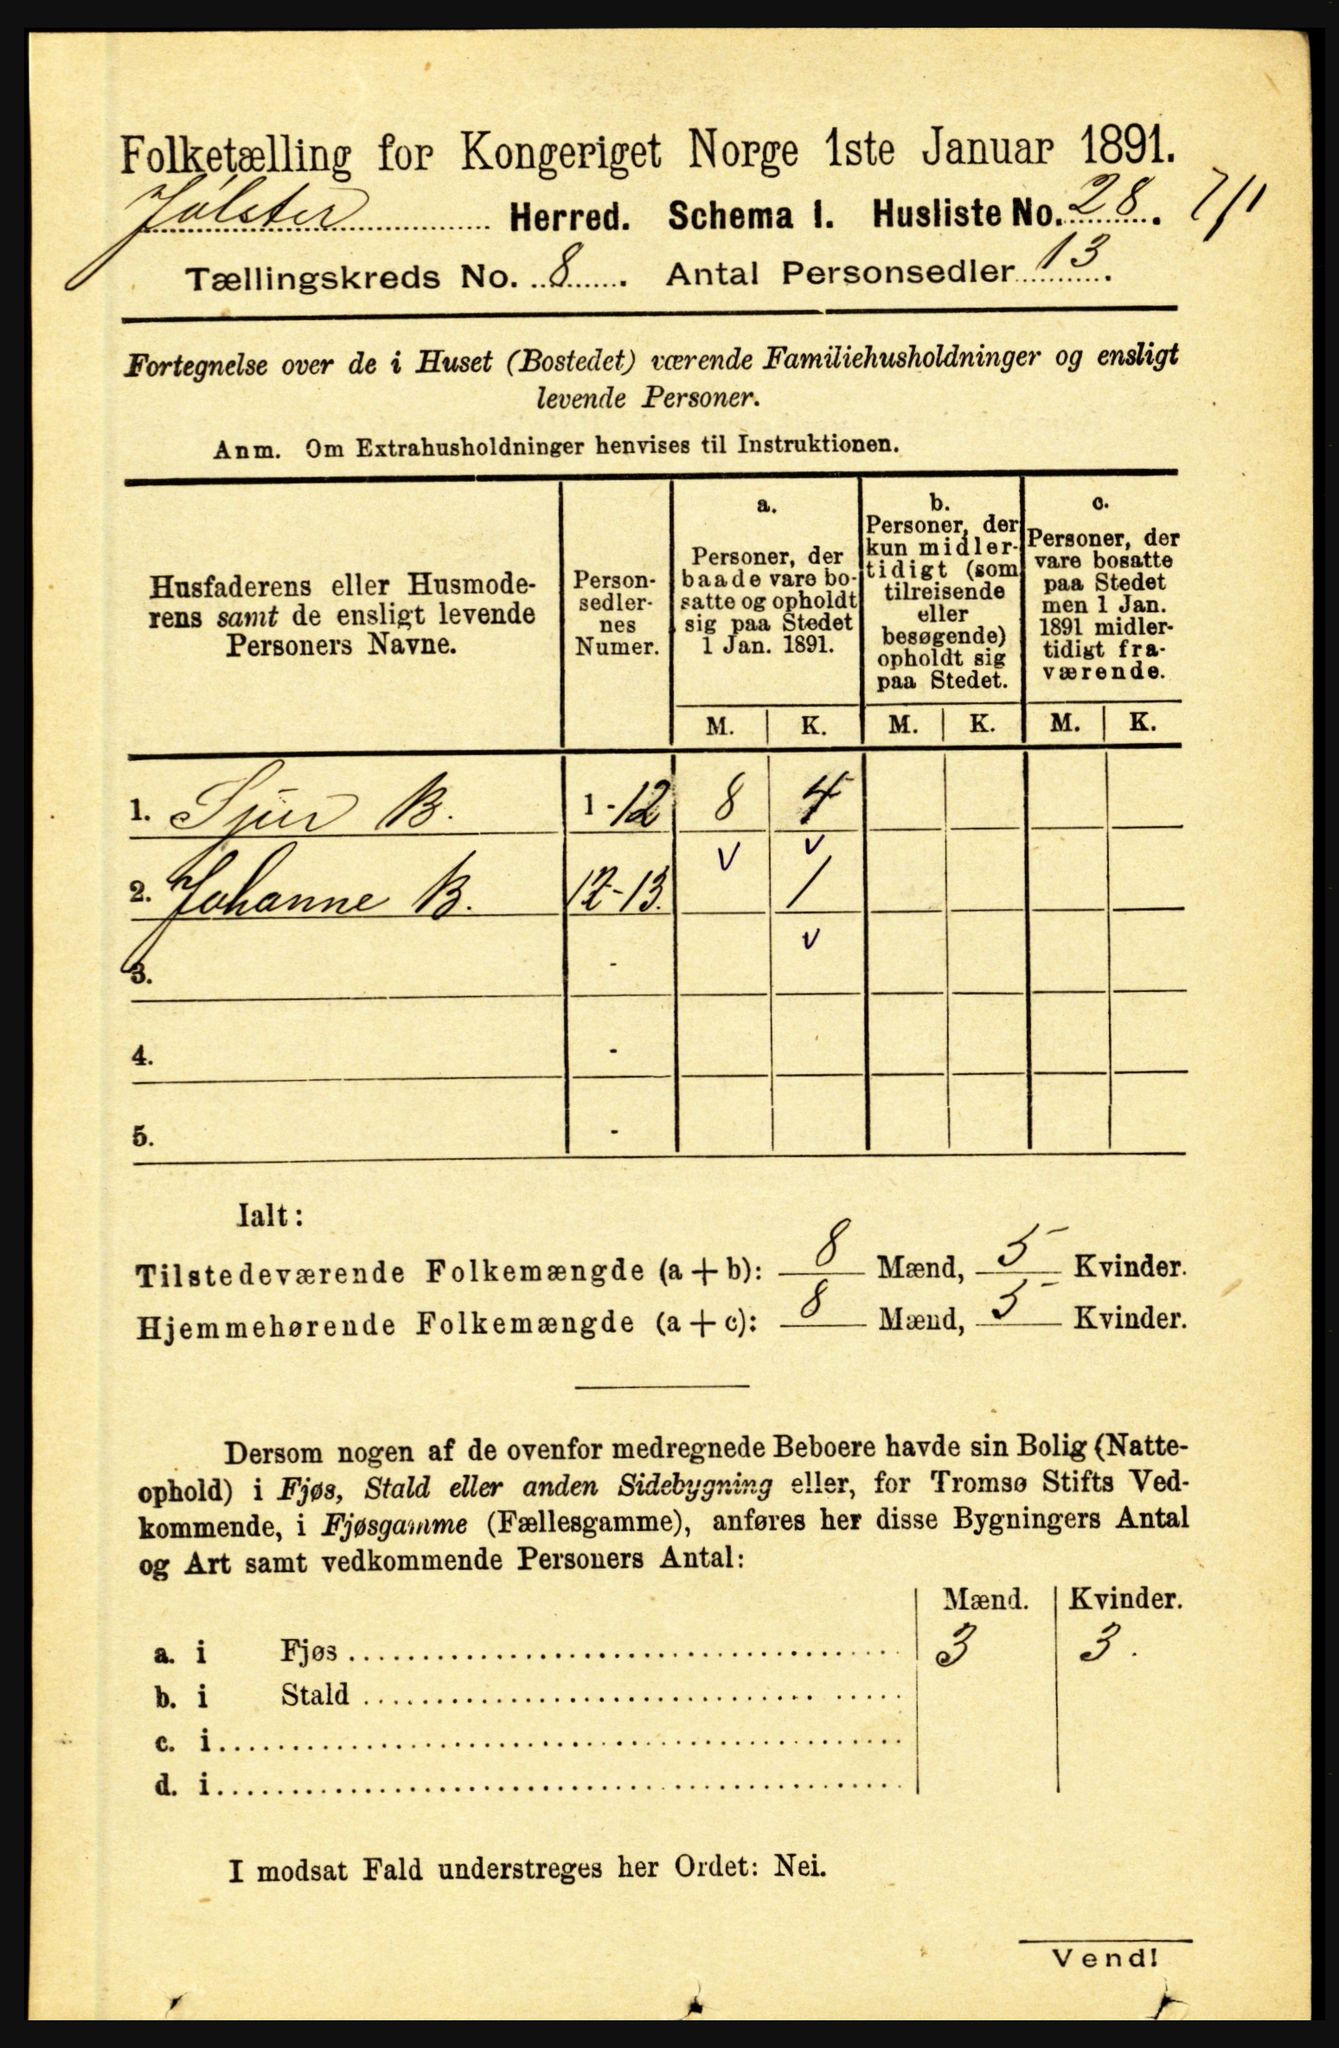 Folketælling for Kongeriget Norge 1ste Januar 1891.
Jølster Herred. Schema 1. Husliste No. 28. 7/1
Tællingskreds No. 8. Antal Personsedler 13.
Fortegnelse over de i Huset (Bostedet) værende Familiehusholdninger og ensligt
levende Personer.
Anm. Om Extrahusholdninger henvises til Instruktionen.
Husfaderens eller Husmode-
rens samt de ensligt levende
Personers Navne.
Person-
sedler-
nes
Numer.
a.
Personer, der
baade vare bo-
satte og opholdt
sig paa Stedet
1 Jan. 1891.
b.
Personer, der
kun midler-
tidigt (som
tilreisende
eller
besøgende)
opholdt sig
paa Stedet.
c.
Personer, der
vare bosatte
paa Stedet
men 1 Jan.
1891 midler-
tidigt fra-
værende.
M. K. M. K. M. K.
1. Sjur B. 1-12 8 4
v v
2. Johanne B. 12-13. 1
v
3. -
4. -
5. -
Ialt:
Tilstedeværende Folkemængde (a+b): 8 Mænd, 5 Kvinder.
Hjemmehørende Folkemængde (a+c): 8 Mænd, 5 Kvinder.
Dersom nogen af de ovenfor medregnede Beboere havde sin Bolig (Natte-
ophold) i Fjøs, Stald eller anden Sidebygning eller, for Tromsø Stifts Ved-
kommende, i Fjøsgamme (Fællesgamme), anføres her disse Bygningers Antal
og Art samt vedkommende Personers Antal:
Mænd. Kvinder.
a. i Fjøs 3 3.
b. i Stald
c. i
d. i
I modsat Fald understreges her Ordet: Nei.
Vend!